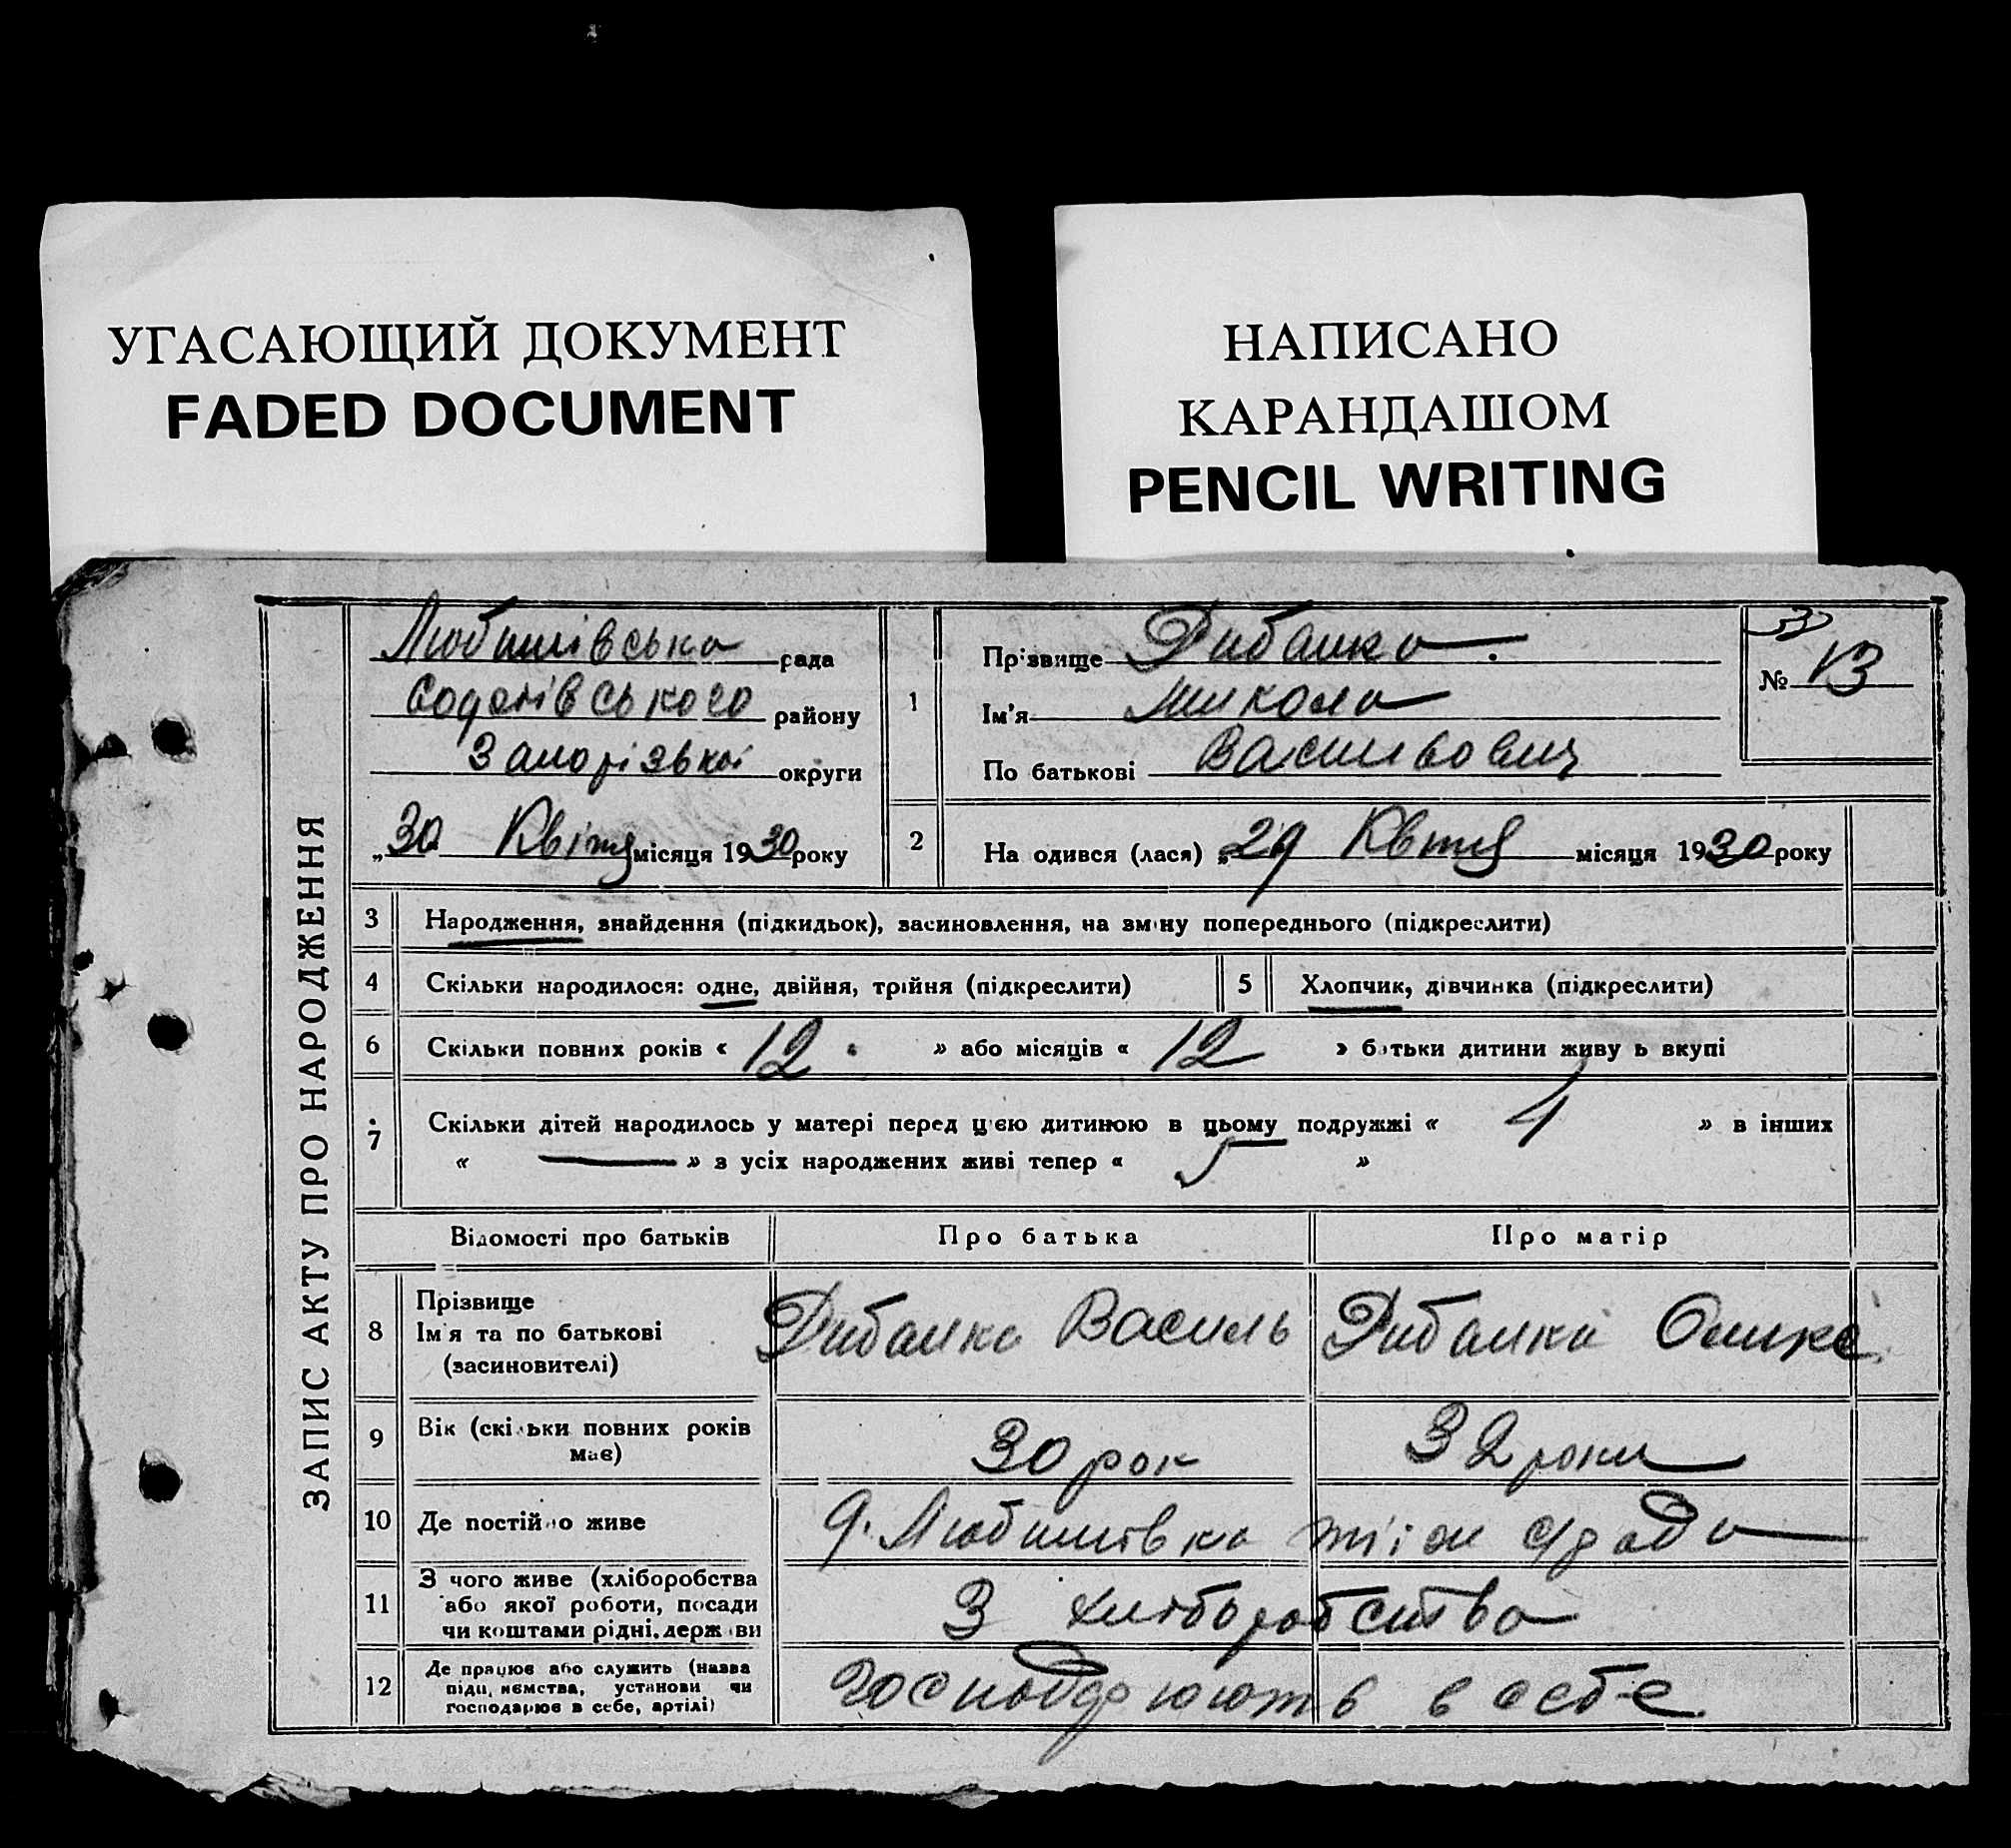 УГАСАЮЩИЙ ДОКУМЕНТ
FADED DOCUMENT
НАПИСАНО
КАРАНДАШОМ
PENCIL WRITING
ЗАПИС АКТУ ПРО НАРОДЖЕННЯ
Любимівська рада
району
Запорізької округи
„30 Квітня місяця 1930 року
1 Прізвище Рибалка
Ім'я Микола
По батькові Васильович
№ 13
2 На одився (лася) „29 Квтня місяця 1930 року
3 Народження, знайдення (підкидьок), засиновлення, на зміну попереднього (підкреслити)
4 Скільки народилося: одне, двійня, трійня (підкреслити)
5 Хлопчик, дівчинка (підкреслити)
6 Скільки повних років « 12 » або місяців « 12 » батьки дитини живу ь вкупі
7 Скільки дітей народилось у матері перед цією дитиною в цьому подружжі « 4 » в інших
« — » з усіх народжених живі тепер « 5 »
Відомості про батьків Про батька Про матір
8 Прізвище
Ім'я та по батькові
(засиновителі)
Рибалка Василь Рибалка
9 Вік (скільки повних років
має)
30 рок 32 роки
10 Де постійно живе Любимівка
11 З чого живе (хліборобства
або якої роботи, посади
чи коштами рідні, держави
З хліборобства
12 Де працює або служить (назва
підприємства, установи чи
господарює в себе, артілі)
господорюють в себе